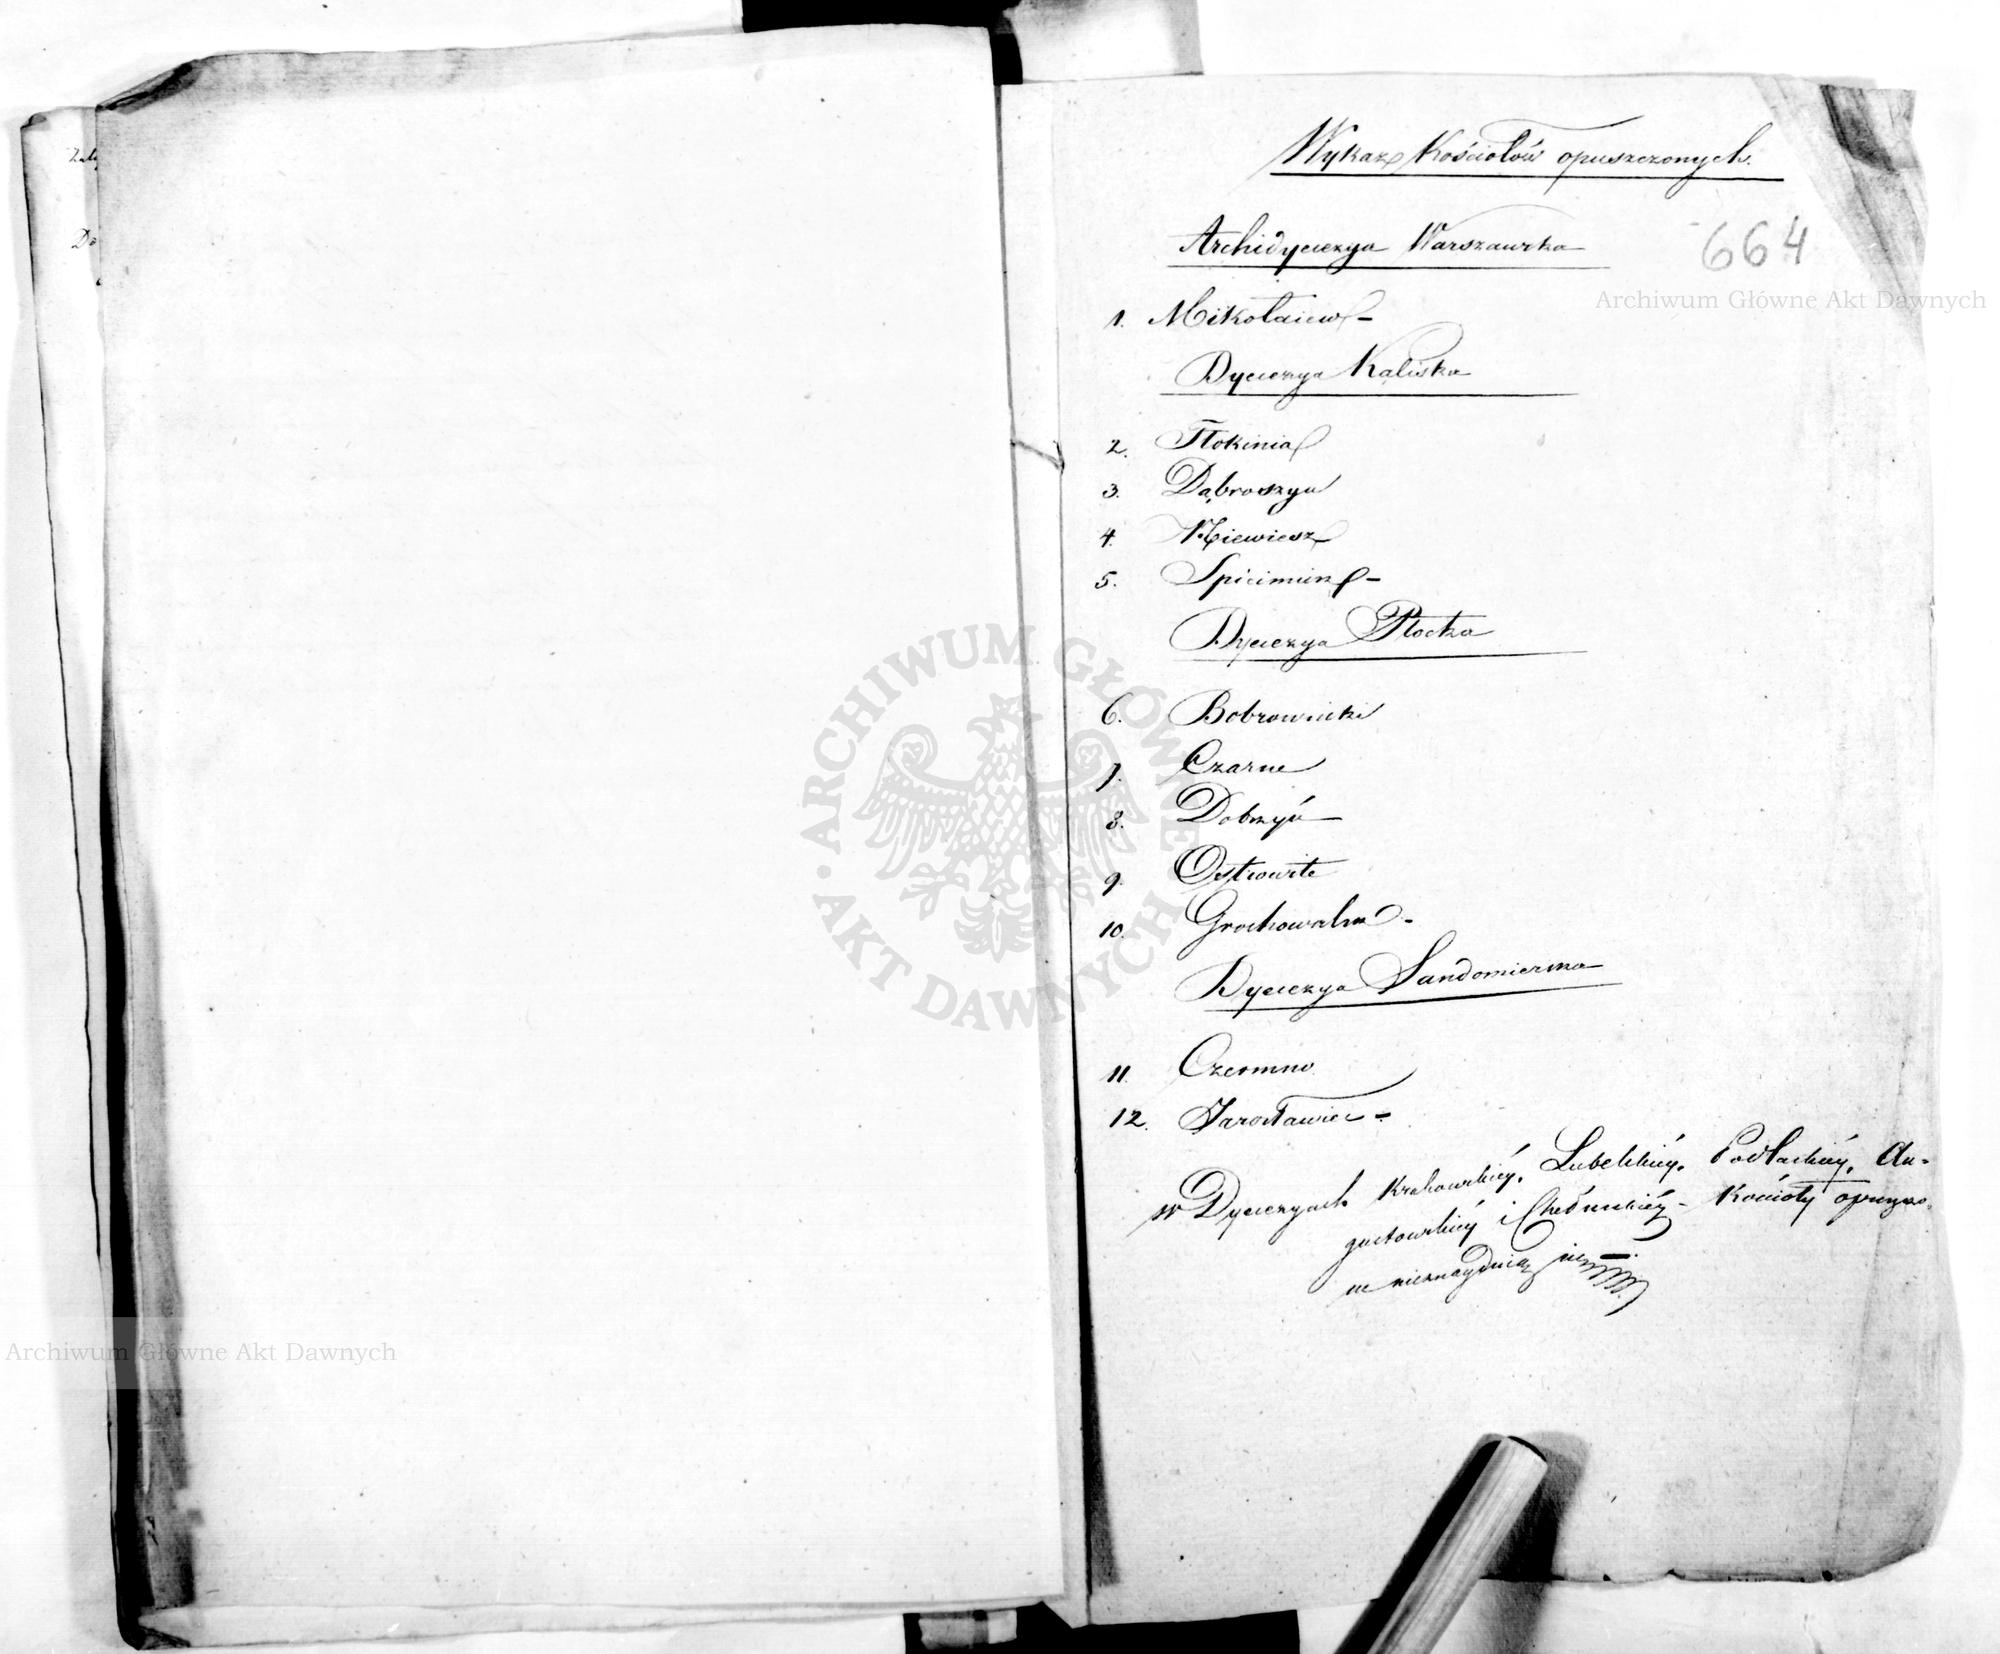 Wykaz Kościołów opuszczonych.
664
Archidyecezya Warszawska
Archiwum Główne Akt Dawnych
1. Mikołaiew -
Dyecezya Kaliska
2. Tłokinia
3. Dąbroszyn
4. Niewiesz
5. Spicimirz -
Dyecezya Płocka
6. Bobrowniki
7. Czarne
8. Dobrzyń
9. Ostrowite
10. Grochowalsk -
Dyecezya Sandomierska
11. Czermno
12. Jarosławice -
w Dyecezyach Krakowskiey, Lubelskiey, Podlaskiey, Au-
gustowskiey i Chełmskiéy - Kościoły opuszczo-
ne nieznayduią się
ARCHIWUM GŁÓWNE AKT DAWNYCH
Archiwum Główne Akt Dawnych